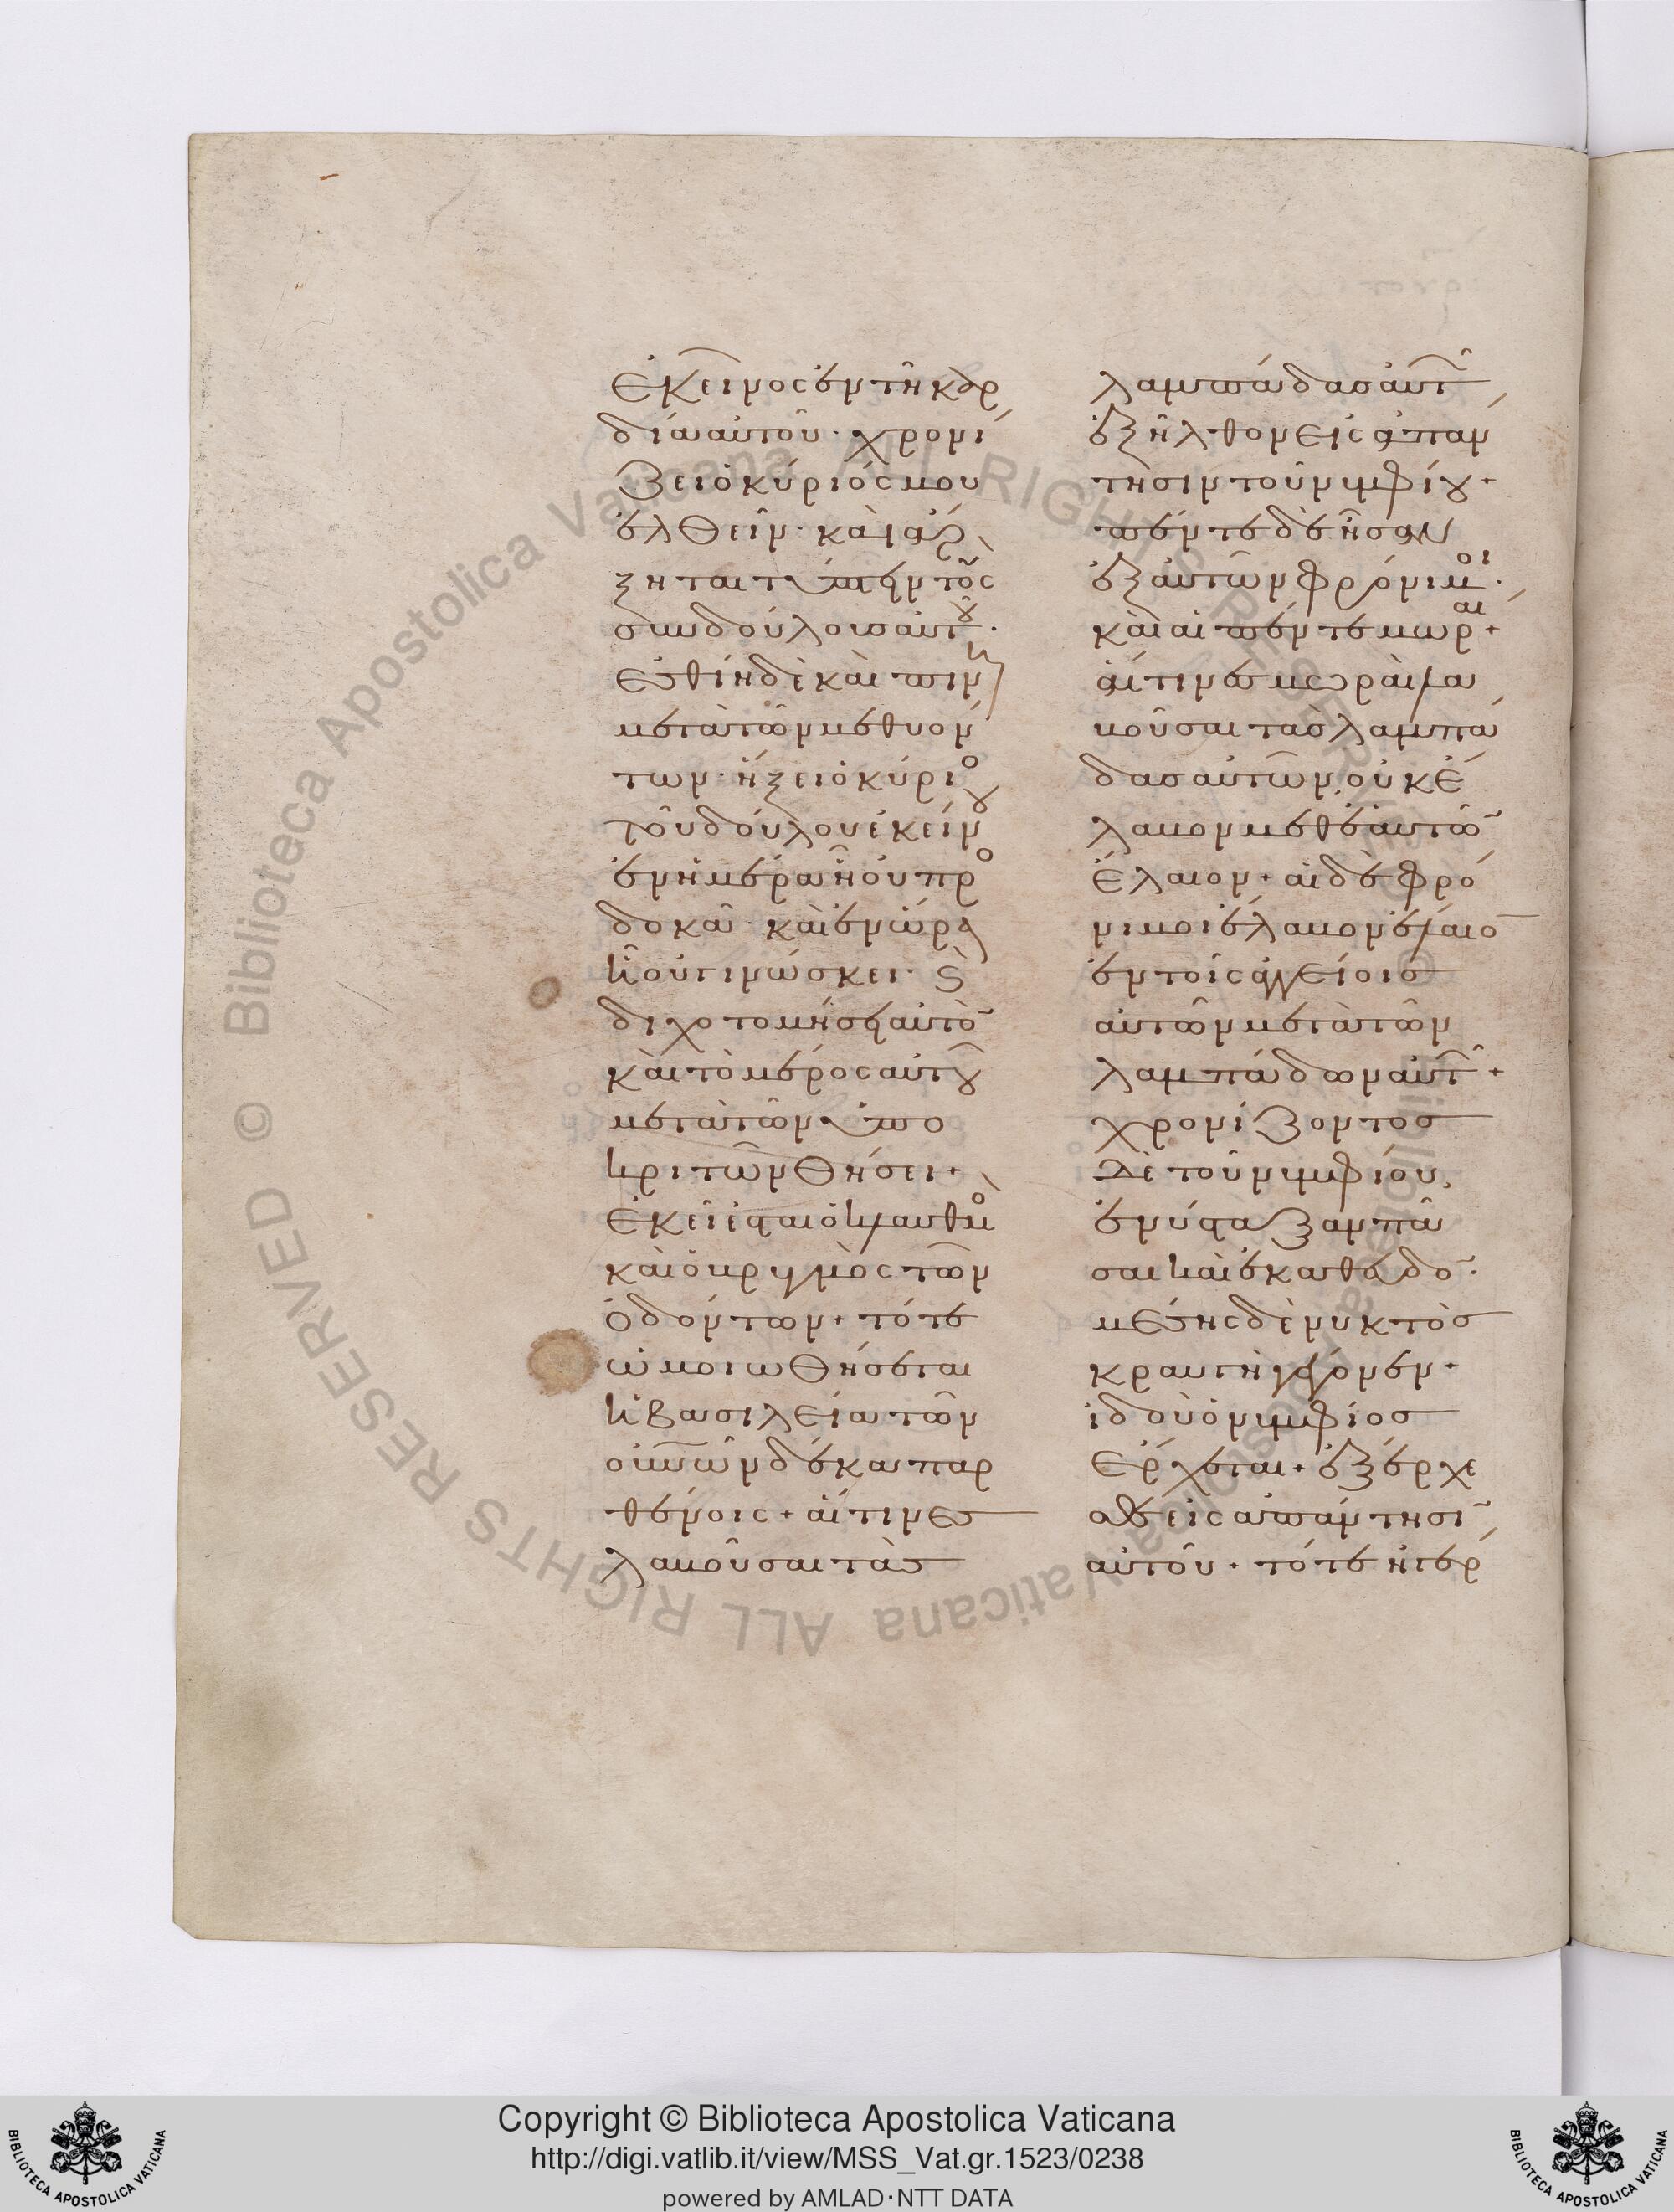 ἐκεῖνος ἐν τῆ καρ
δία αὐτοῦ· χρονί
ζει ὁ κύριός μου
ἐλθεῖν· καὶ ἄρ
ξηται τύπτειν τοὺς
συνδούλους αὐτοῦ·
ἐσθίη δὲ καὶ πίνη
μετὰ τῶν μεθυόν
των· ἥξει ὁ κύριος
τοῦ δούλου ἐκείνου
ἐν ἡμέρα ἧ οὐ προσ
δοκᾶ· καὶ ἐν ὥρα
ἧ οὐ γινώσκει· καὶ
διχοτομήσει αὐτὸν
καὶ τὸ μέρος αὐτοῦ
μετὰ τῶν ὑπο
κριτῶν θήσει+
ἐκεῖ ἔσται ὁ κλαυθμὸς
καὶ ὁ βρυγμὸς τῶν
ὀδόντων+ τότε
ὡμοιωθήσεται
ἡ βασιλεία τῶν
οὐνῶν δέκα παρ
θένοις+ αἵτινες
λαβοῦσαι τὰς
λαμπάδας αὐτῶν
ἐξῆλθον εἰς ἀπάν
τησιν τοῦ νυμφίου+
πέντε δὲ ἦσαν
ἐξ αὐτῶν φρόνιμοι·
καὶ αἱ πέντε μωραί+
αἵτινες μωραὶ λα
βοῦσαι τὰς λαμπά
δας αὐτῶν, οὐκ ἔ
λαβον μεθ' ἑαυτῶν
ἔλαιον+ αἱ δὲ φρό
νιμοι ἔλαβον ἔλαιον
ἐν τοῖς ἀγγείοις
αὐτῶν μετὰ τῶν
λαμπάδων αὐτῶν+
χρονίζοντος
δὲ τοῦ νυμφίου,
ἐνύσταξαν πᾶ
σαι καὶ ἐκάθευδον·
μέσης δὲ νυκτὸς
κραυγὴ γέγονεν+
ἰδοὺ ὁ νυμφίος
ἔρχεται+ ἐξέρχε
σθε εἰς ἀπάντησιν
αὐτοῦ+ τότε ἠγέρ
Copyright © Biblioteca Apostolica Vaticana
http://digi.vatlib.it/view/MSS_Vat.gr.1523/0238
powered by AMLAD·NTT DATA
BIBLIOTECA APOSTOLICA VATICANA
BIBLIOTECA APOSTOLICA VATICANA
© Biblioteca Apostolica Vaticana ALL RIGHTS RESERVED
© Biblioteca Apostolica Vaticana ALL RIGHTS RESERVED